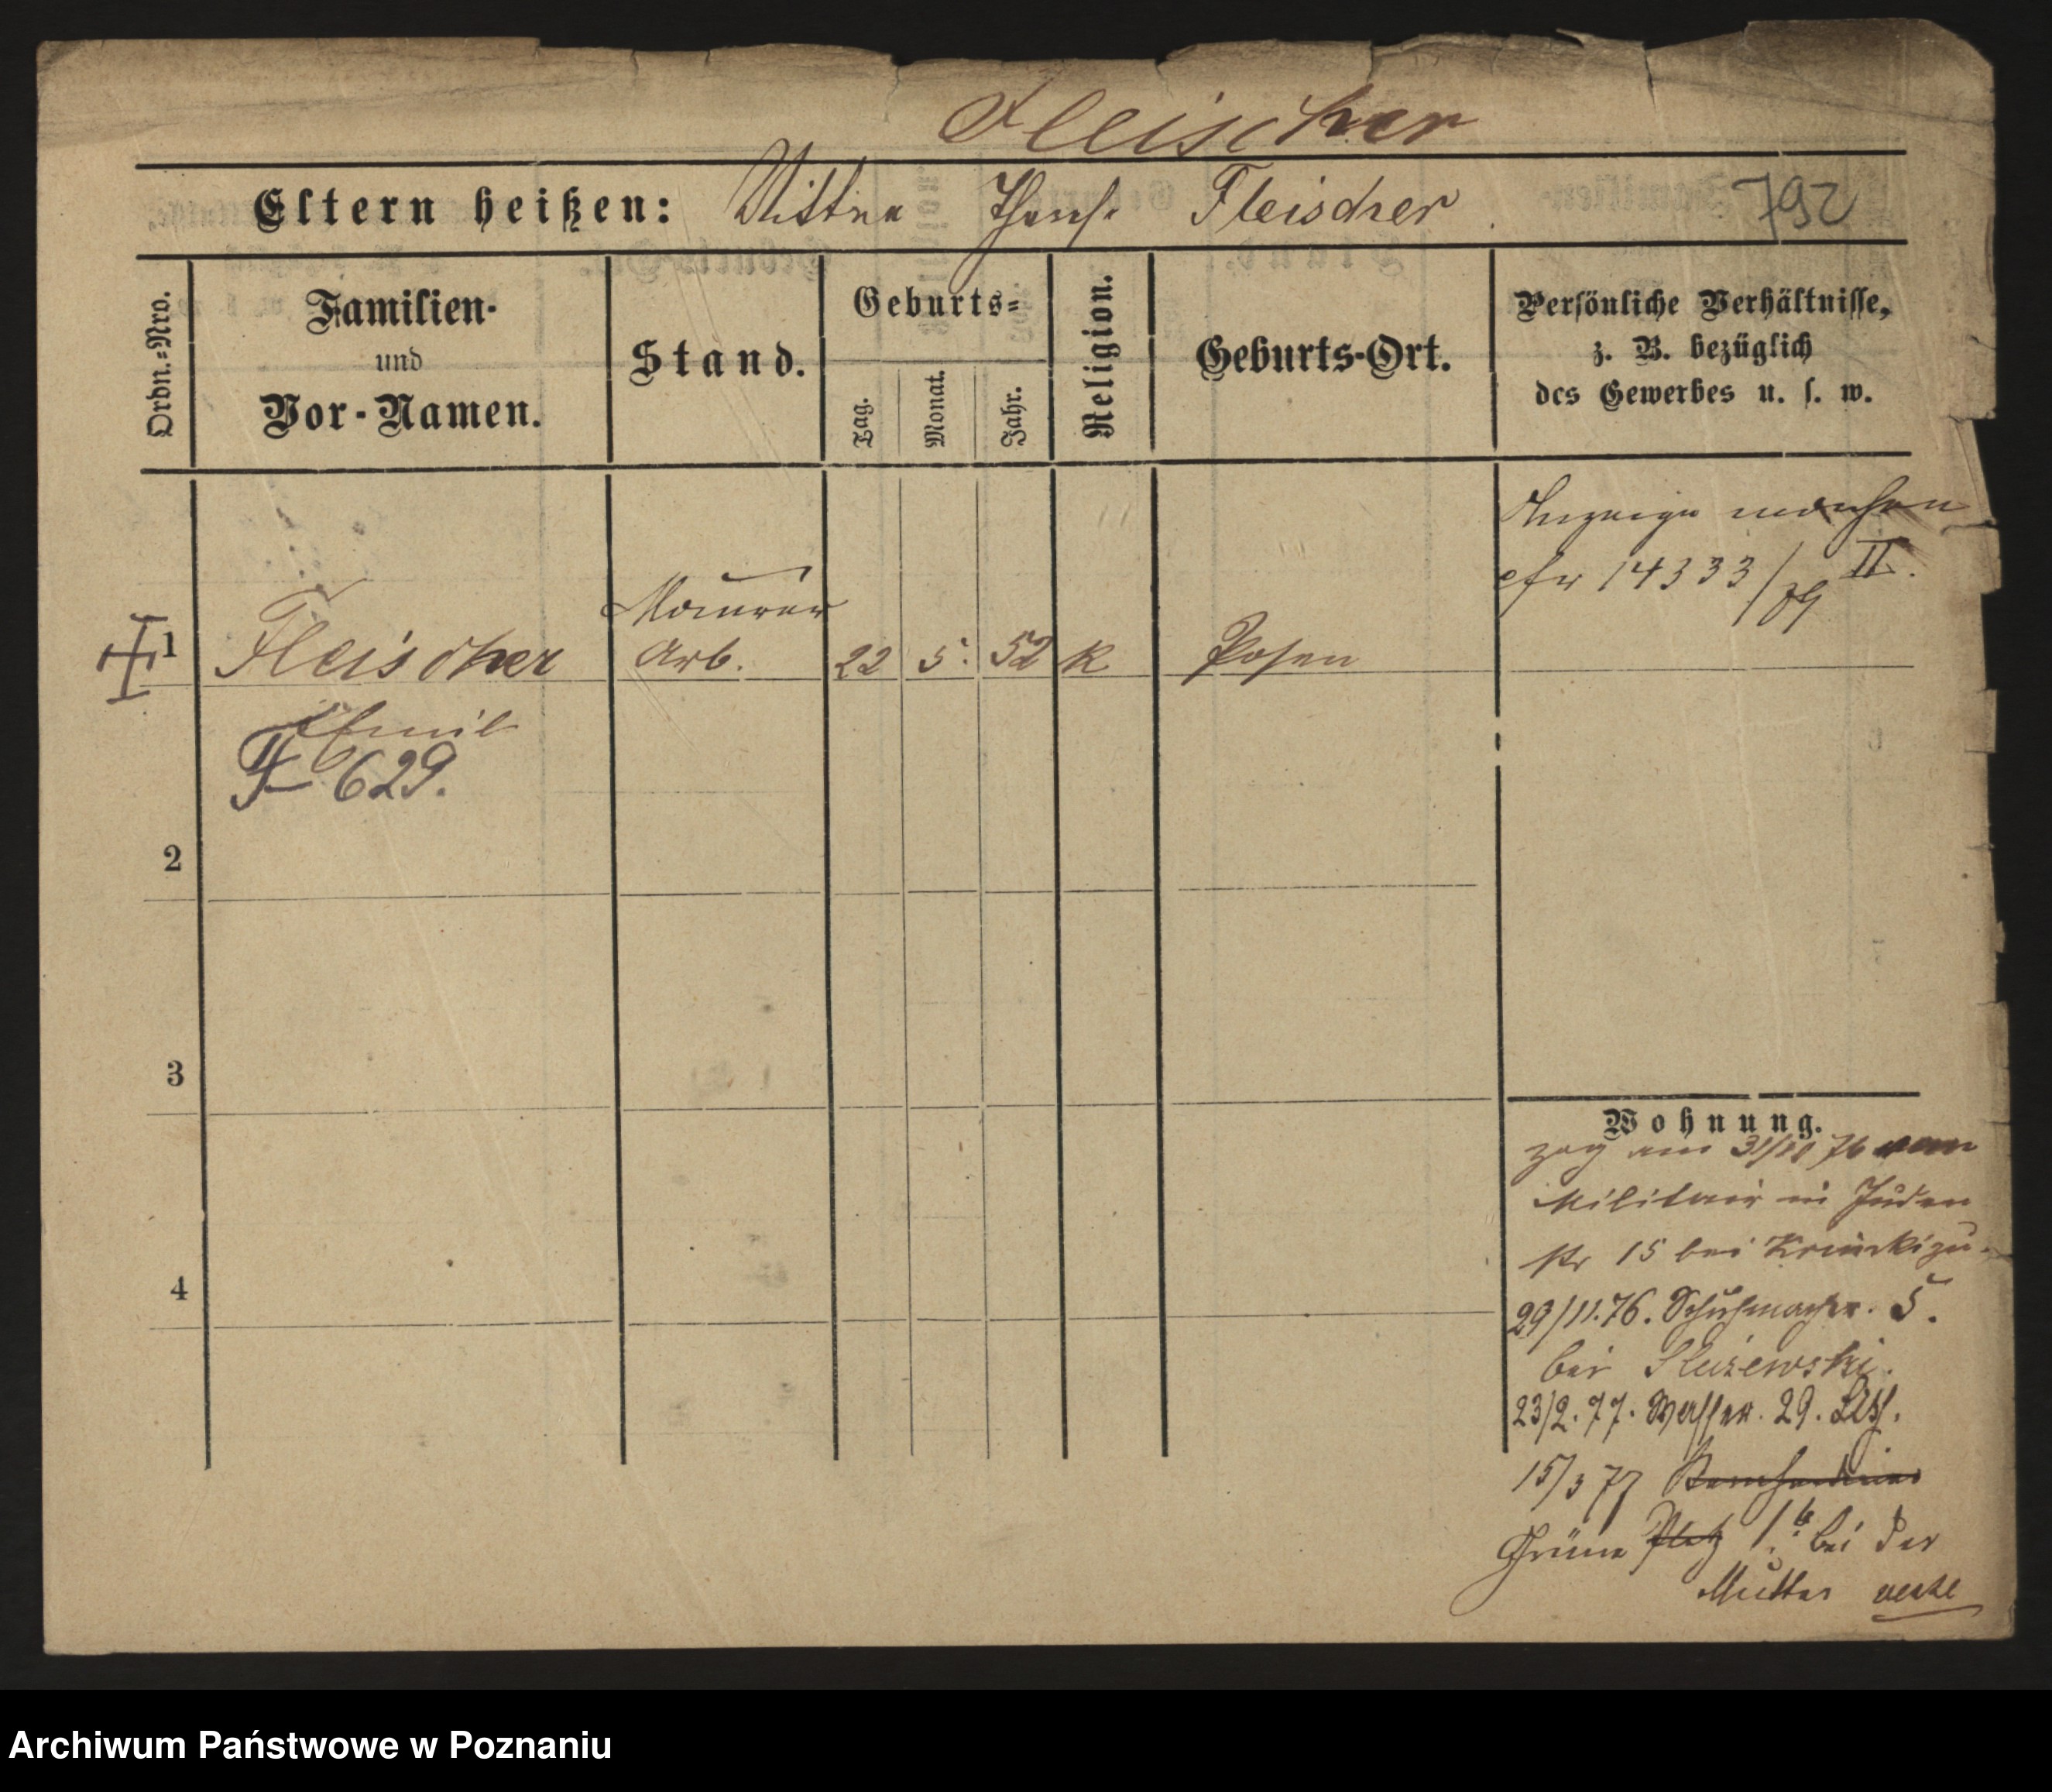 Fleischer
Eltern heißen: Fleischer 792
Ordn.-Nro.
Familien-
und
Vor-Namen.
Stand.
Geburts-
Tag.
Monat.
Jahr.
Religion.
Geburts-Ort.
Persönliche Verhältnisse,
z. B. bezüglich
des Gewerbes u. s. w.
Anzeige machen
14333/89 II.
Maurer
1 Fleischer Arb. 22 5. 52 K Posen
Emil
F 629.
2
3
4
Wohnung.
zog am 76 vom
Militair in Juden
str 15 bei
29/11.76. Schuhmacher. 5.
bei
23/2.77. Wasser. 29.
15/3 77 Bernhardiner
Grüne Platz 1 bei der
Mutter
Archiwum Państwowe w Poznaniu